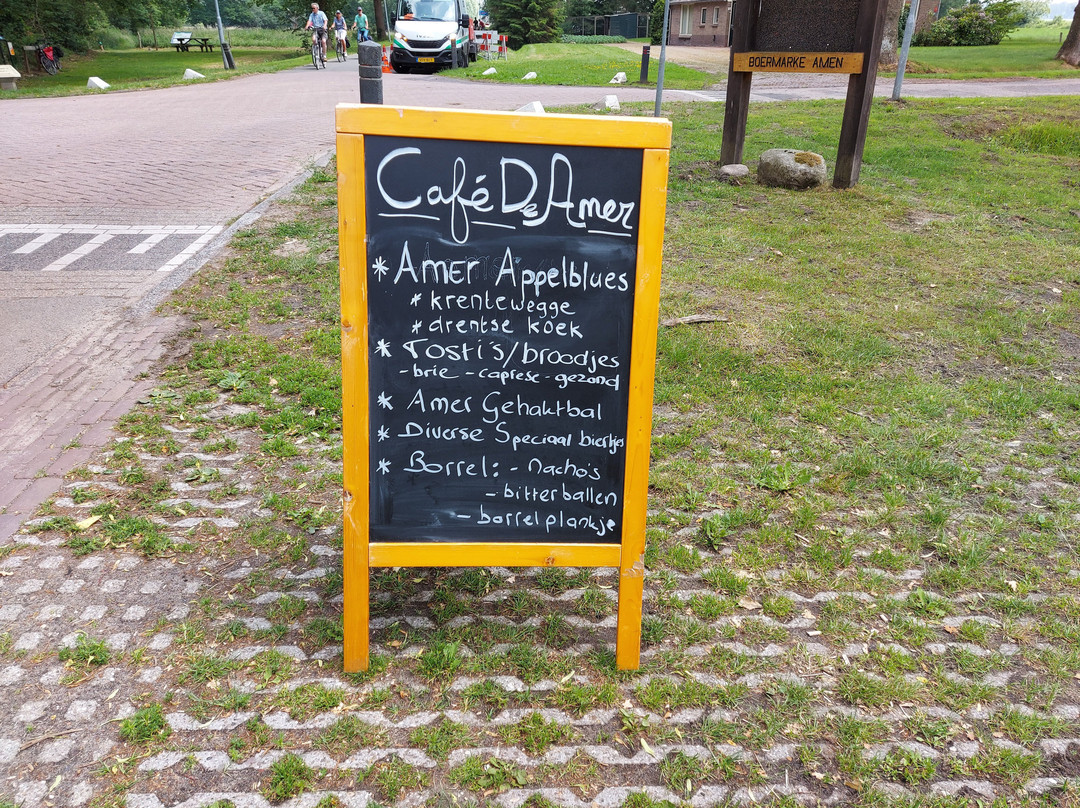 BOERMARKE AMEN
Café De Amer
* Amer Appelblues
* krentewegge
* drentse koek
* Tosti's/broodjes
- brie - caprese - gezond
* Amer Gehaktbal
* Diverse Speciaal biertjes
* Borrel: - Nacho's
- bitterballen
- borrelplankje